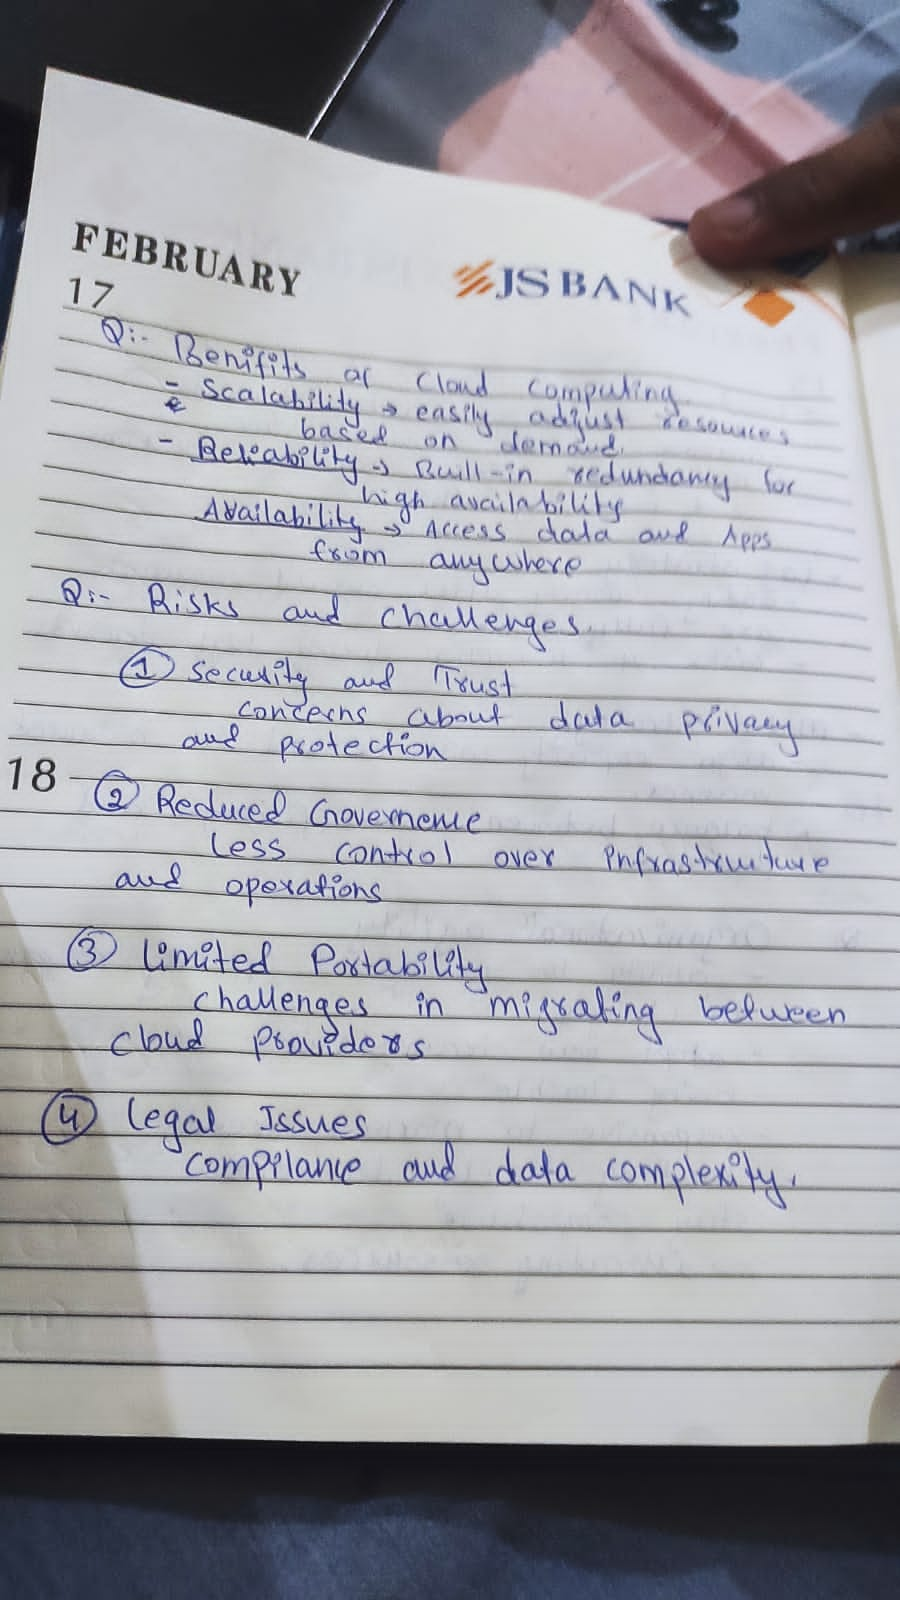 FEBRUARY
JS BANK
17
Q:- Benifits of Cloud Computing
- Scalability → easily adjust resources
based on demand.
- Reliability → Built-in redundancy for
high availability
Availability → Access data and Apps
from anywhere
Q:- Risks and challenges.
① Security and Trust
concerns about data privacy
and protection
18
② Reduced Governence
Less control over infrastructure
and operations
③ Limited Portability
challenges in migrating between
cloud Providers
④ Legal Issues
Compilance and data complexity.